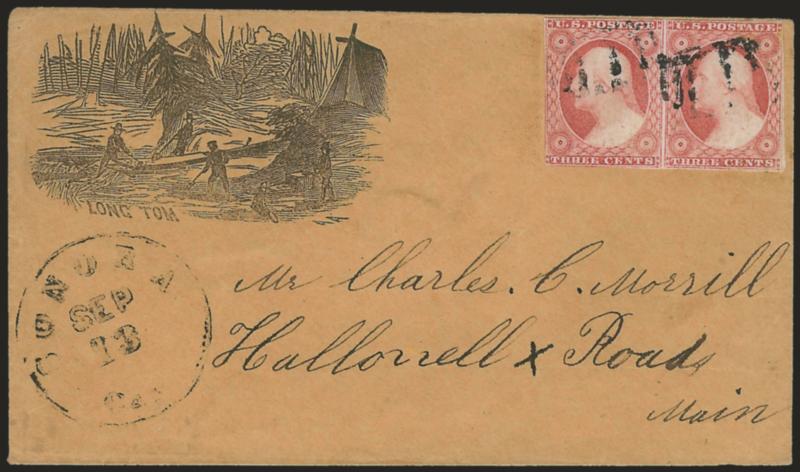 U.S. POSTAGE U.S. POSTAGE
THREE CENTS THREE CENTS
LONG TOM
SONORA
SEP
13
Cal
Mr Charles. C. Morrill
Hallowell x Roads
Main